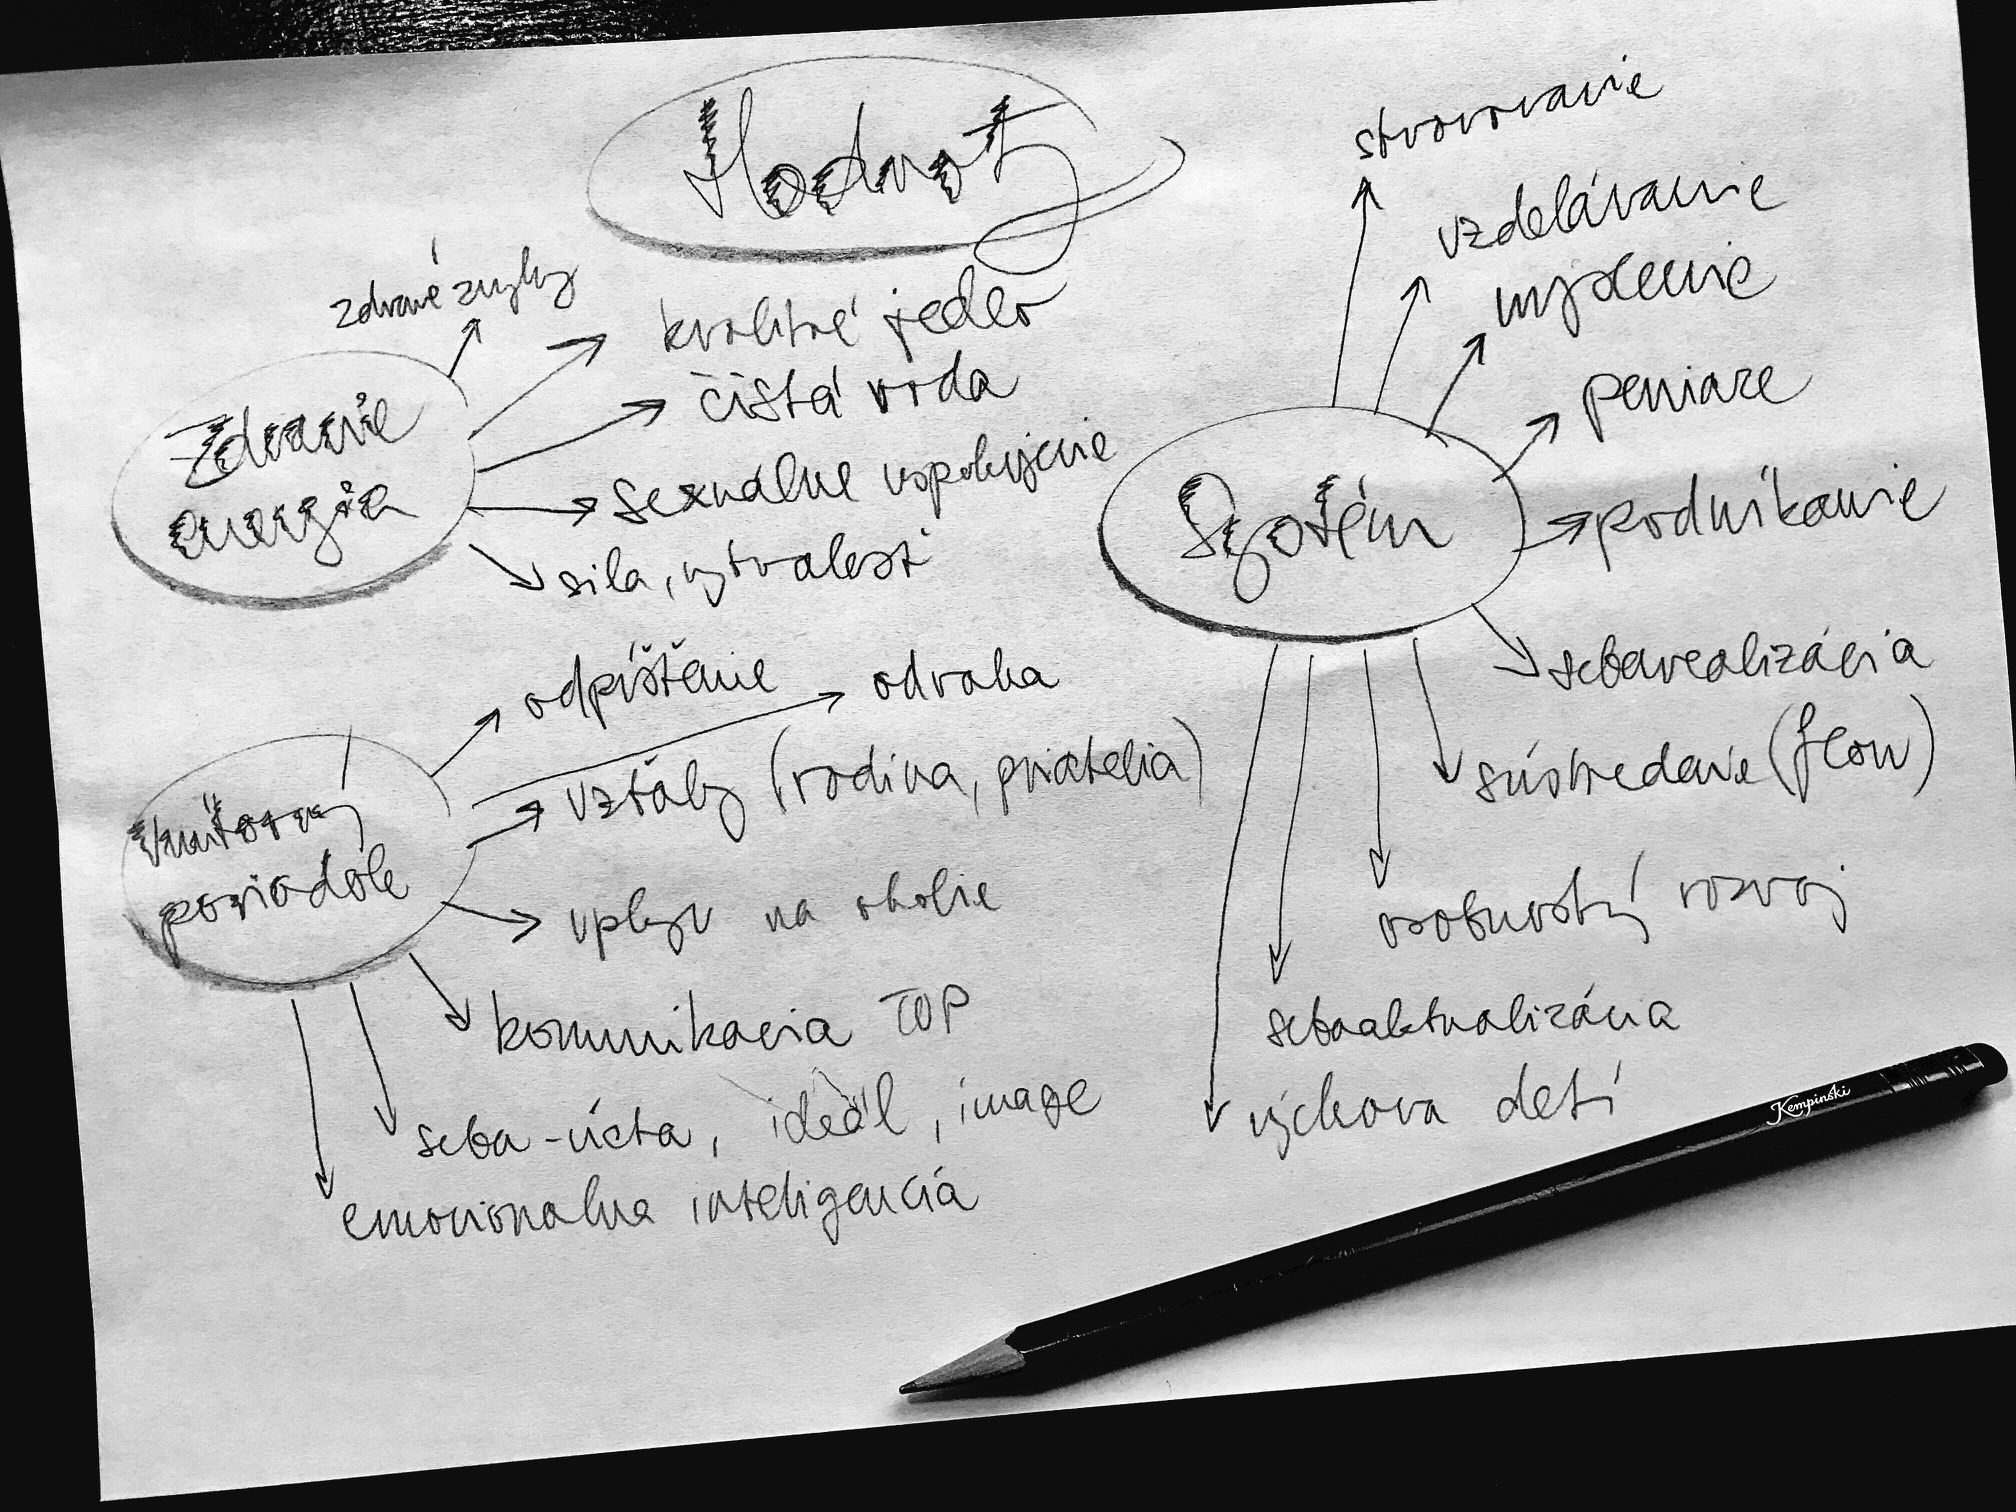 Hodnoty
zdravé zvyky
kvalitné jedlo
čistá voda
sexuálne uspokojenie
sila, vytrvalosť
Zdravie
energia
odpúštanie
odvaha
vzťahy (rodina, priatelia)
vplyv na okolie
komunikacia TOP
seba-úcta, ideál, image
emocionalna inteligencia
Vnútorný
poriadok
stvorovanie
vzdelávanie
myslenie
peniaze
podnikanie
sebarealizácia
sústredenie (flow)
osobnostný rozvoj
sebaaktualizácia
výchova detí
Systém
Kempinski